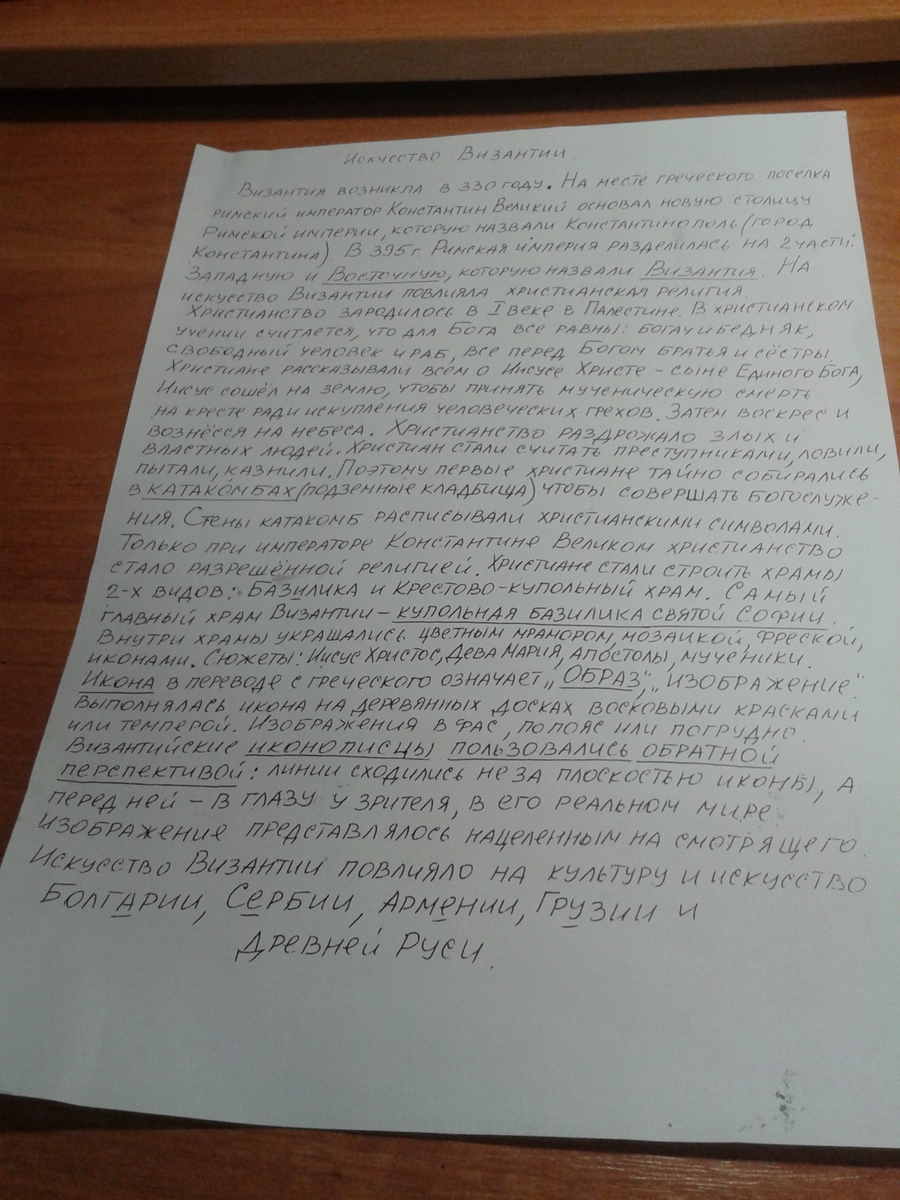 Искусство Византии
Византия возникла в 330 году. На месте греческого посёлка
римский император Константин Великий основал новую столицу
Римской империи, которую назвали Константинополь (город
Константина). В 395 г. Римская империя разделилась на 2 части:
Западную и Восточную, которую назвали Византия. На
искусство Византии повлияла христианская религия.
Христианство зародилось в I веке в Палестине. В христианском
учении считается, что для Бога все равны: богач и бедняк,
свободный человек и раб, все перед Богом братья и сёстры.
Христиане рассказывали всем о Иисусе Христе – сыне Единого Бога,
Иисус сошёл на землю, чтобы принять мученическую смерть
на кресте ради искупления человеческих грехов. Затем воскрес и
вознёсся на небеса. Христианство раздрожало злых и
властных людей. Христиан стали считать преступниками, ловили,
пытали, казнили. Поэтому первые христиане тайно собирались
в катакомбах (подземные кладбища) чтобы совершать богослуже-
ния. Стены катакомб расписывали христианскими символами.
Только при императоре Константине Великом христианство
стало разрешённой религией. Христиане стали строить храмы
2-х видов: базилика и крестово-купольный храм. Самый
главный храм Византии – купольная базилика святой Софии.
Внутри храмы украшались цветным мрамором, мозаикой, фреской,
иконами. Сюжеты: Иисус Христос, Дева Мария, апостолы, мученики.
Икона в переводе с греческого означает „образ", „изображение".
Выполнялась икона на деревянных досках восковыми красками
или темперой. Изображения в фас, по пояс или погрудно.
Византийские иконописцы пользовались обратной
перспективой: линии сходились не за плоскостью иконы, а
перед ней – в глазу у зрителя, в его реальном мире.
Изображение представлялось нацеленным на смотрящего.
Искусство Византии повлияло на культуру и искусство
Болгарии, Сербии, Армении, Грузии и
Древней Руси.